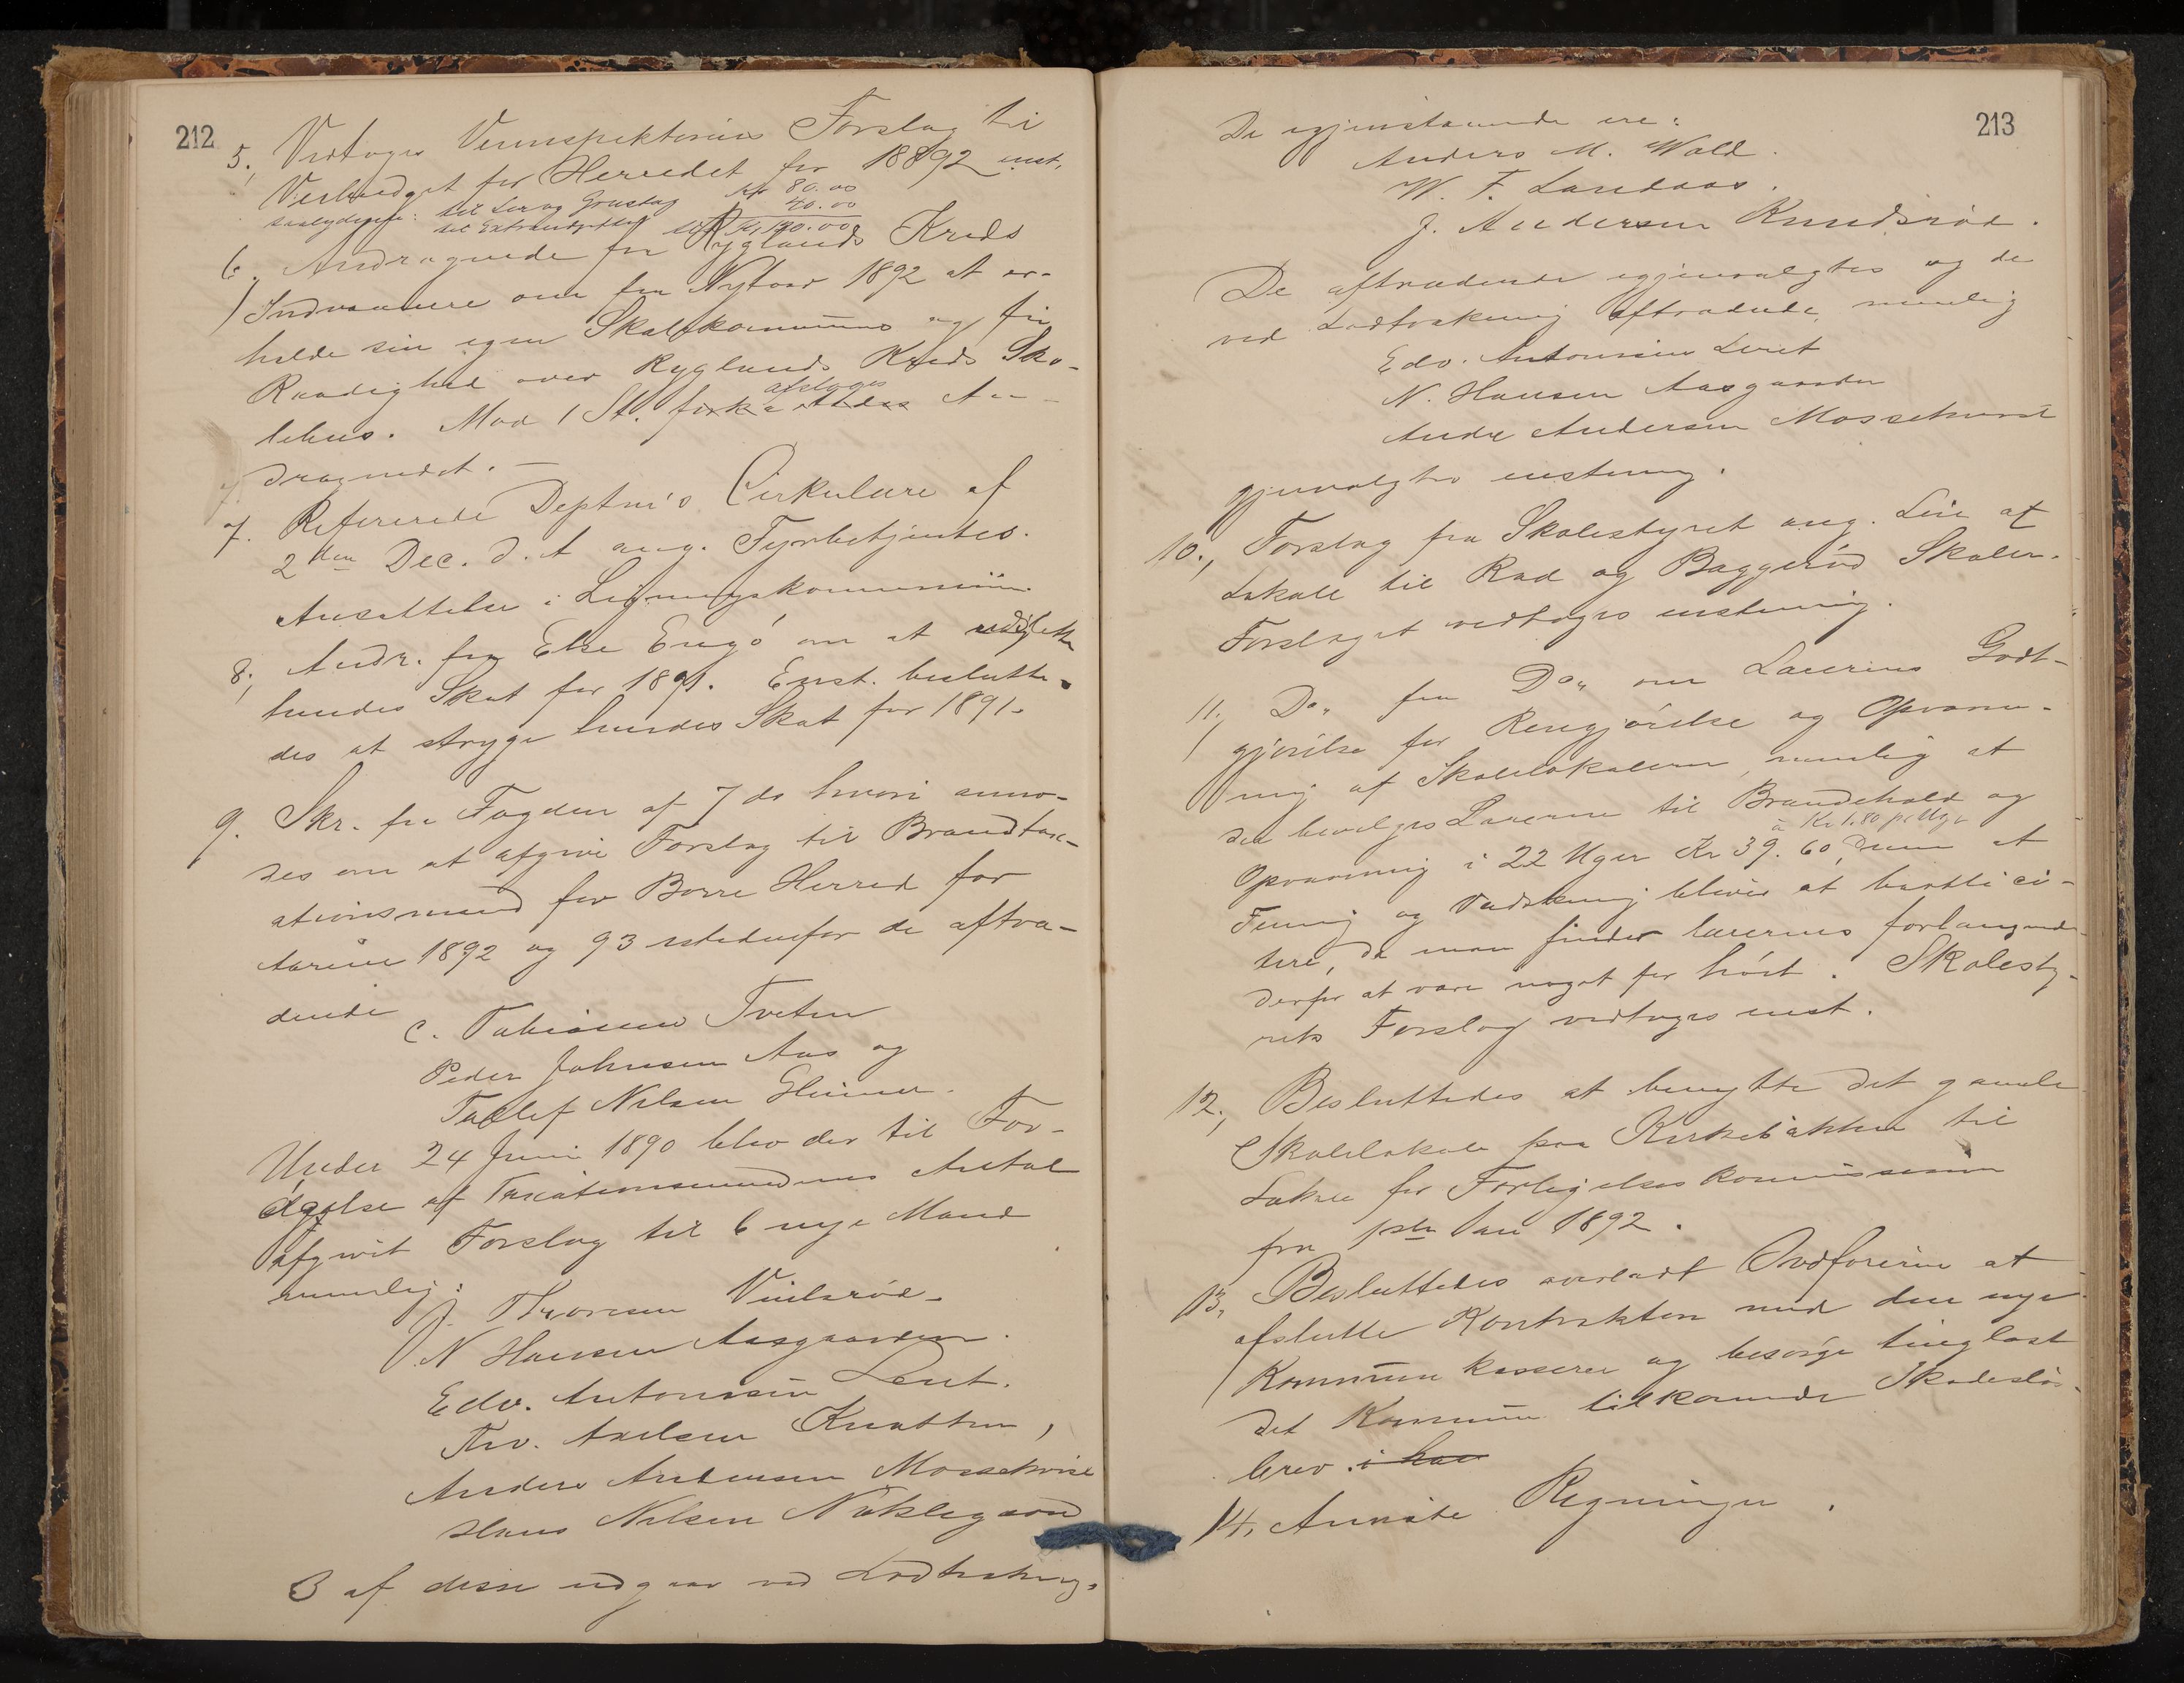 212
5., Vedtoges Veiinspektörens Forslag til
Veibudget for Herredet for 1892 enst.
saalydende: til Ler og Grustag Kr 80.00
til Extraudgifter 40.00
Kr. 120.00
6. Andragende fra Ryglands Kreds
Indvaanere om fra Nytaar 1892 at er-
holde sin egen Skolekommune og fri
Raadighed over Ryglands Kreds Sko-
lehus. Mod 1 St. afsloges An-
dragendet. —
7. Refererede Deptm's Cirkulære af
2den Dec. d. A ang. Fyrbetjentes
Ansættelse i Ligningskommissionen.
8., Andr. fra Else Engö om at
hendes Skat for 1891. Enst. beslutte-
des at stryge hendes Skat for 1891.
9. Skr. fra Fogden af 7 ds hvori anmo-
des om at afgive Forslag til Brandtax-
ationsmænd for Borre Herred for
Aarene 1892 og 93 istedenfor de aftræ-
dende
C. Tobiassen Tveten
Peder Johnsen Aas og
Tallef Nilsen Gleinne.
Under 24 Juni 1890 blev der til For-
ögelse af Taxationsmændenes Antal
afgivet Forslag til 6 nye Mænd
nemlig:
J. Thoresen Viulsröd.
N Hansen Aasgaarden.
Edv. Antonisen Leret.
Thv. Axelsen Knatten,
Anders Andersen Mossekvist
Hans Nilsen Nökleggaard
3 af disse udgaar ved Lodtrækning.
213
De igjenstaaende ere:
Anders M. Wold.
W. F. Landaas.
J. Andersen Knudsröd.
De aftrædende igjenvalgtes og de
ved Lodtrækning aftrædende, nemlig
Edv. Antonisen Leret
N. Hansen Aasgaarden
Andr Andersen Mossekvist
gjenvalgtes enstemmig.
10., Forslag fra Skolestyret ang. Leie af
Lokale til Rød og Baggeröd Skoler.
Forslaget vedtoges enstemmig.
11., Do. fra Do. om Lærernes Godt-
gjörelse for Rengjörelse og Opvarm-
ning af Skolelokalerne, nemlig at
der bevilges Lærerne til Brændehold og
Opvarmning i 22 Uger Kr 39.60, à Kr 1.80 pr Uge, men at
Feining og Vadskning bliver at bortlici-
tere, da man finder lærernes forlangende
derfor at være noget for höit. Skolesty-
rets Forslag vedtoges enst.
12., Besluttedes at benytte det gamle
Skolelokale paa Kirkebakken til
Lokale for Forligelseskommissionen
fra 1ste Jan 1892.
13, Besluttedes overladt Ordföreren at
afslutte Kontrakten med den nye
Kommunekasserer og besörge tinglæst
det Kommunen tilkommende Skadeslös-
brev. i hav
14, Anviste Regninger.